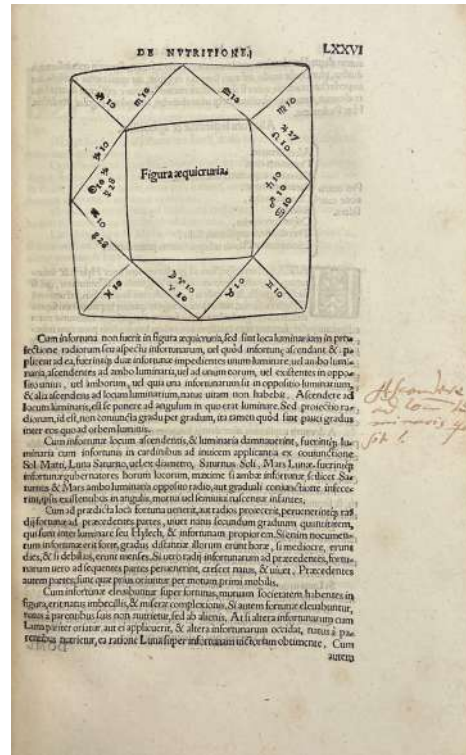 DE NVTRITIONE.
LXXVI
♏ 10
♎ 10
♍ 10
♌ 10
♋ 10
♊ 10
♉ 10
♈ 10
♓ 10
Figura æquicruria.
Cum infortuna non fuerit in figura æquicruria, sed sint loca luminarium in pro-
iectione radiorum seu aspectu infortunarum, uel quòd infortunę ascendant & ap-
plicent ad ea, fuerintq́; duæ infortunæ impedientes unum luminare, uel ambo lumi-
naria, ascendentes ad ambo luminaria, uel ad unum eorum, uel existentes in oppo-
sito unius, uel amborum, uel quia una infortunarum sit in oppositio luminarium,
& alia ascendens ad locum luminarium, natus uitam non habebit. Ascendere ad
locum luminaris, est se ponere ad angulum in quo erat luminare. Sed proiectio ra-
diorum, id est, non coniuncta gradu per gradum, ita tamen quòd sint pauci gradus
inter eos quo ad orbem luminis.
Cum infortunæ locum ascendentis, & luminaria damnauerint, fuerintq́; lu-
minaria cum infortunis in cardinibus ad inuicem applicantia ex coniunctione
Sol Marti, Luna Saturno, uel ex diametro, Saturnus Soli, Mars Lunæ fuerintq́;
infortunæ gubernatores horum locorum, maxime si ambæ infortunæ scilicet Sa-
turnus & Mars ambo luminaria opposito radio, aut graduali coniunctione infece-
rint, ipsis existentibus in angulis, mortui uel semiuiui nascentur infantes.
Cum ad prædicta loca fortuna uenerit, aut radios proiecerit, peruenerintq́; ra-
dij fortunæ ad præcedentes partes, uiuet natus secundum graduum quantitatem,
qui sunt inter luminare seu Hylech, & infortunam propiorem. Si enim nocumen-
tum infortunæ erit forte, gradus distantiæ illorum erunt horæ, si mediocre, erunt
dies, & si debilius, erunt menses. Si uero radij infortunarum ad præcedentes, fortu-
narum uero ad sequentes partes peruenerint, crescet natus, & uiuet. Præcedentes
autem partes, sunt quæ prius oriuntur per motum primi mobilis.
Cum infortunæ eleuabuntur super fortunas, mutuam societatem habentes in
figura, erit natus imbecillis, & miseræ complexionis. Si autem fortunæ eleuabuntur,
natus à parentibus suis non nutrietur, sed ab alienis. At si altera infortunarum cum
Luna pariter oriatur, aut ei applicuerit, & altera infortunarum occidat, natus à pa-
rentibus nutrietur, ea ratione Luna super infortunam uictoriam obtinente. Cum
autem
Ascendere